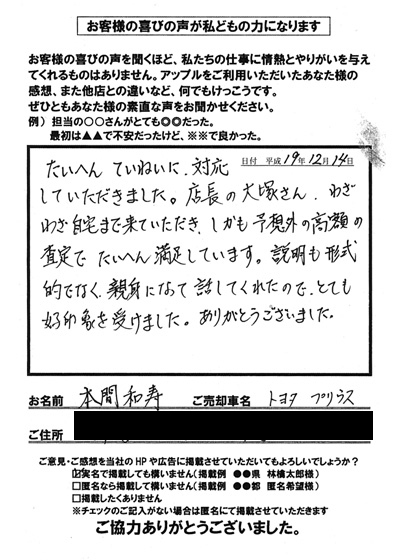 お客様の喜びの声が私どもの力になります
お客様の喜びの声を聞くほど、私たちの仕事に情熱とやりがいを与え
てくれるものはありません。アップルをご利用いただいたあなた様の
感想、また他店との違いなど、何でもけっこうです。
ぜひともあなた様の素直な声をお聞かせください。
例）担当の○○さんがとても◎◎だった。
最初は▲▲で不安だったけど、※※で良かった。
日付 平成 19年 12月 14日
たいへん ていねいに、対応
していただきました。店長の大塚さん、わざ
わざ自宅まで来ていただき、しかも予想外の高額の
査定で たいへん満足しています。説明も形式
的でなく、親身になって話してくれたので、とても
好印象を受けました。ありがとうございました。
お名前 本間和寿 ご売却車名 トヨタ プリウス
ご住所
ご意見・ご感想を当社のHPや広告に掲載させていただいてもよろしいでしょうか？
☑実名で掲載しても構いません（掲載例 ●●県 林檎太郎様）
□匿名なら掲載して構いません（掲載例 ●●都 匿名希望様）
□掲載したくありません
※チェックのご記入がない場合は匿名にて掲載させていただきます
ご協力ありがとうございました。